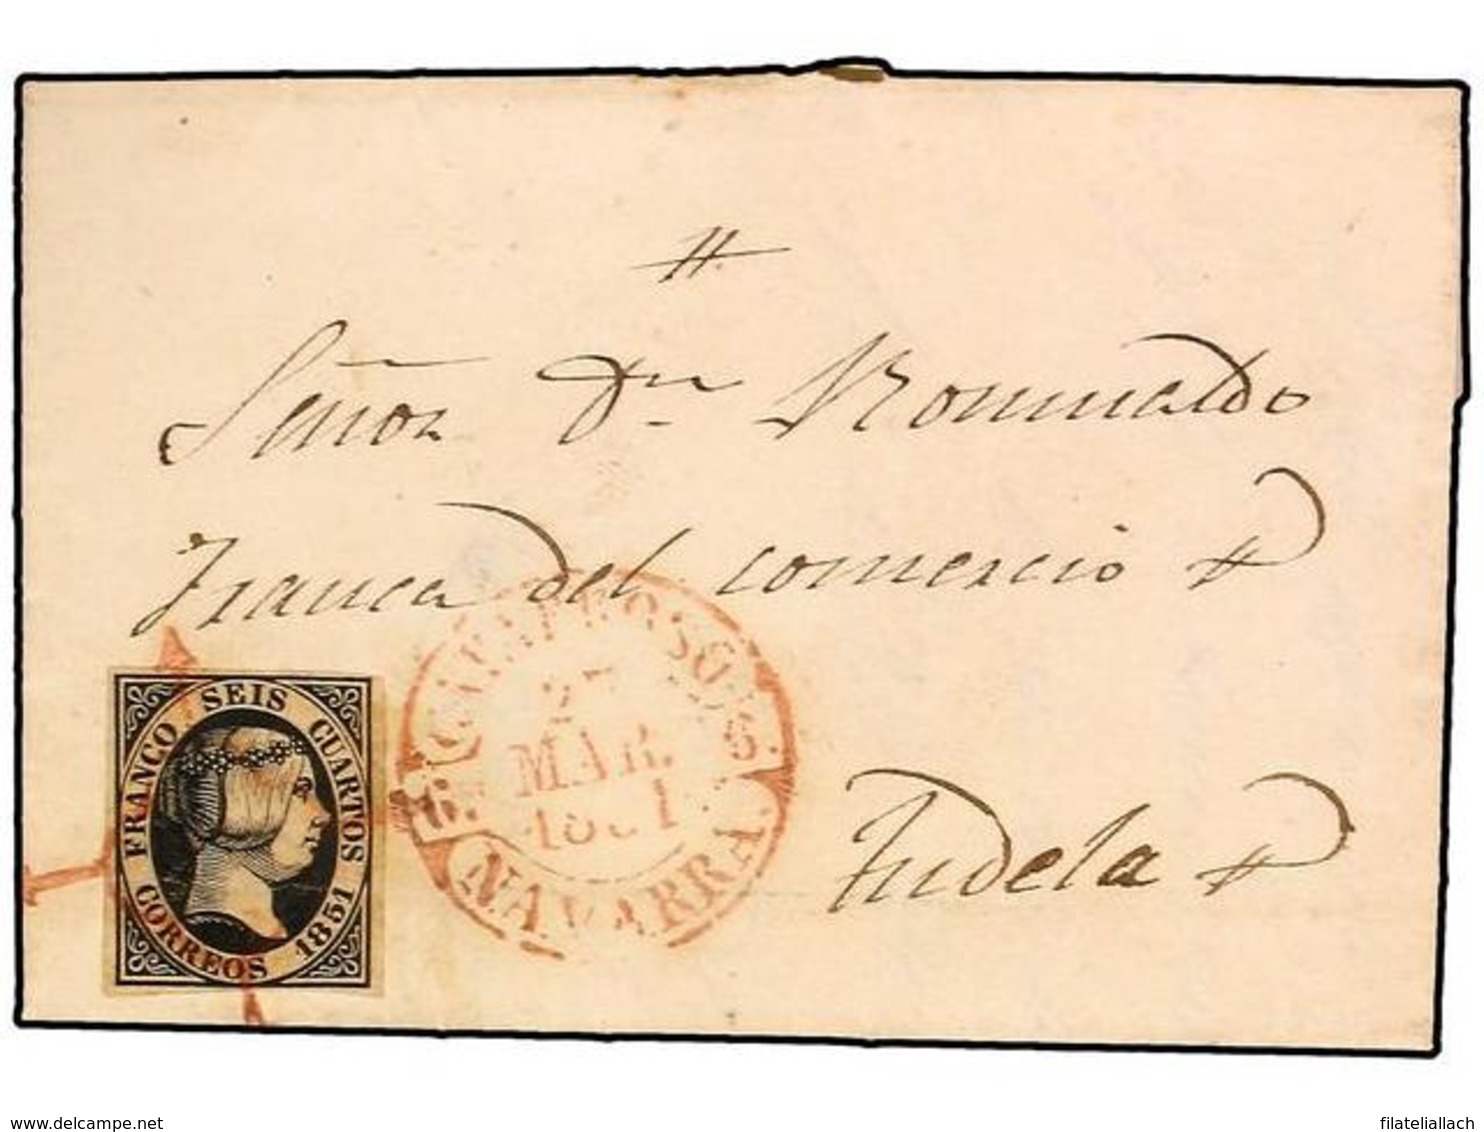 #
Señor Dn Romualdo
Franca del comercio
Tudela
FRANCO SEIS CUARTOS
CORREOS 1851
CAPARROSO
27
MAR.
1851
6. 6.
NAVARRA.
www.delcampe.net
filateliallach